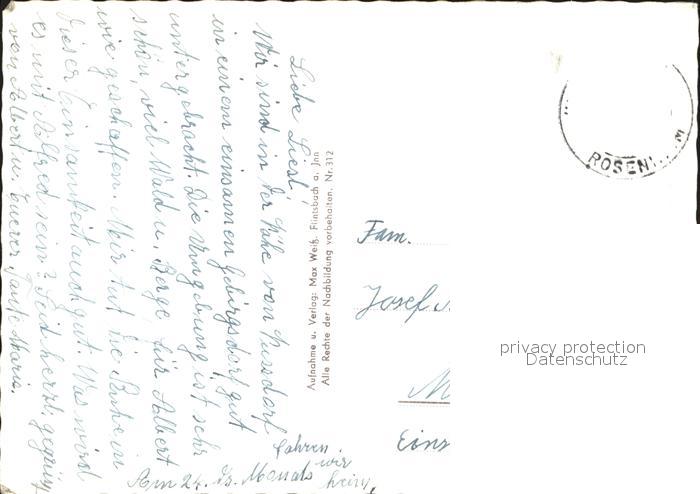 Liebe Liesl!
Wir sind in der Nähe von Nussdorf
in einem einsamen Gebirgsdorf gut
untergebracht. Die Umgebung ist sehr
schön, viel Wald u. Berge, für Albert
wie geschaffen. Mir tut die Ruhe in
dieser Einsamkeit auch gut. Was wird
es mit Alfred sein? Seid herzl. gegrüßt
von Albert u. Euerer Tante Maria.
Am 24. ds. Monats
fahren
wir
heim.
Aufnahme u. Verlag: Max Weiß, Flintsbach a. Jnn
Alle Rechte der Nachbildung vorbehalten. Nr. 312
ROSENH
Fam.
Josef
M
Eins
privacy protection
Datenschutz